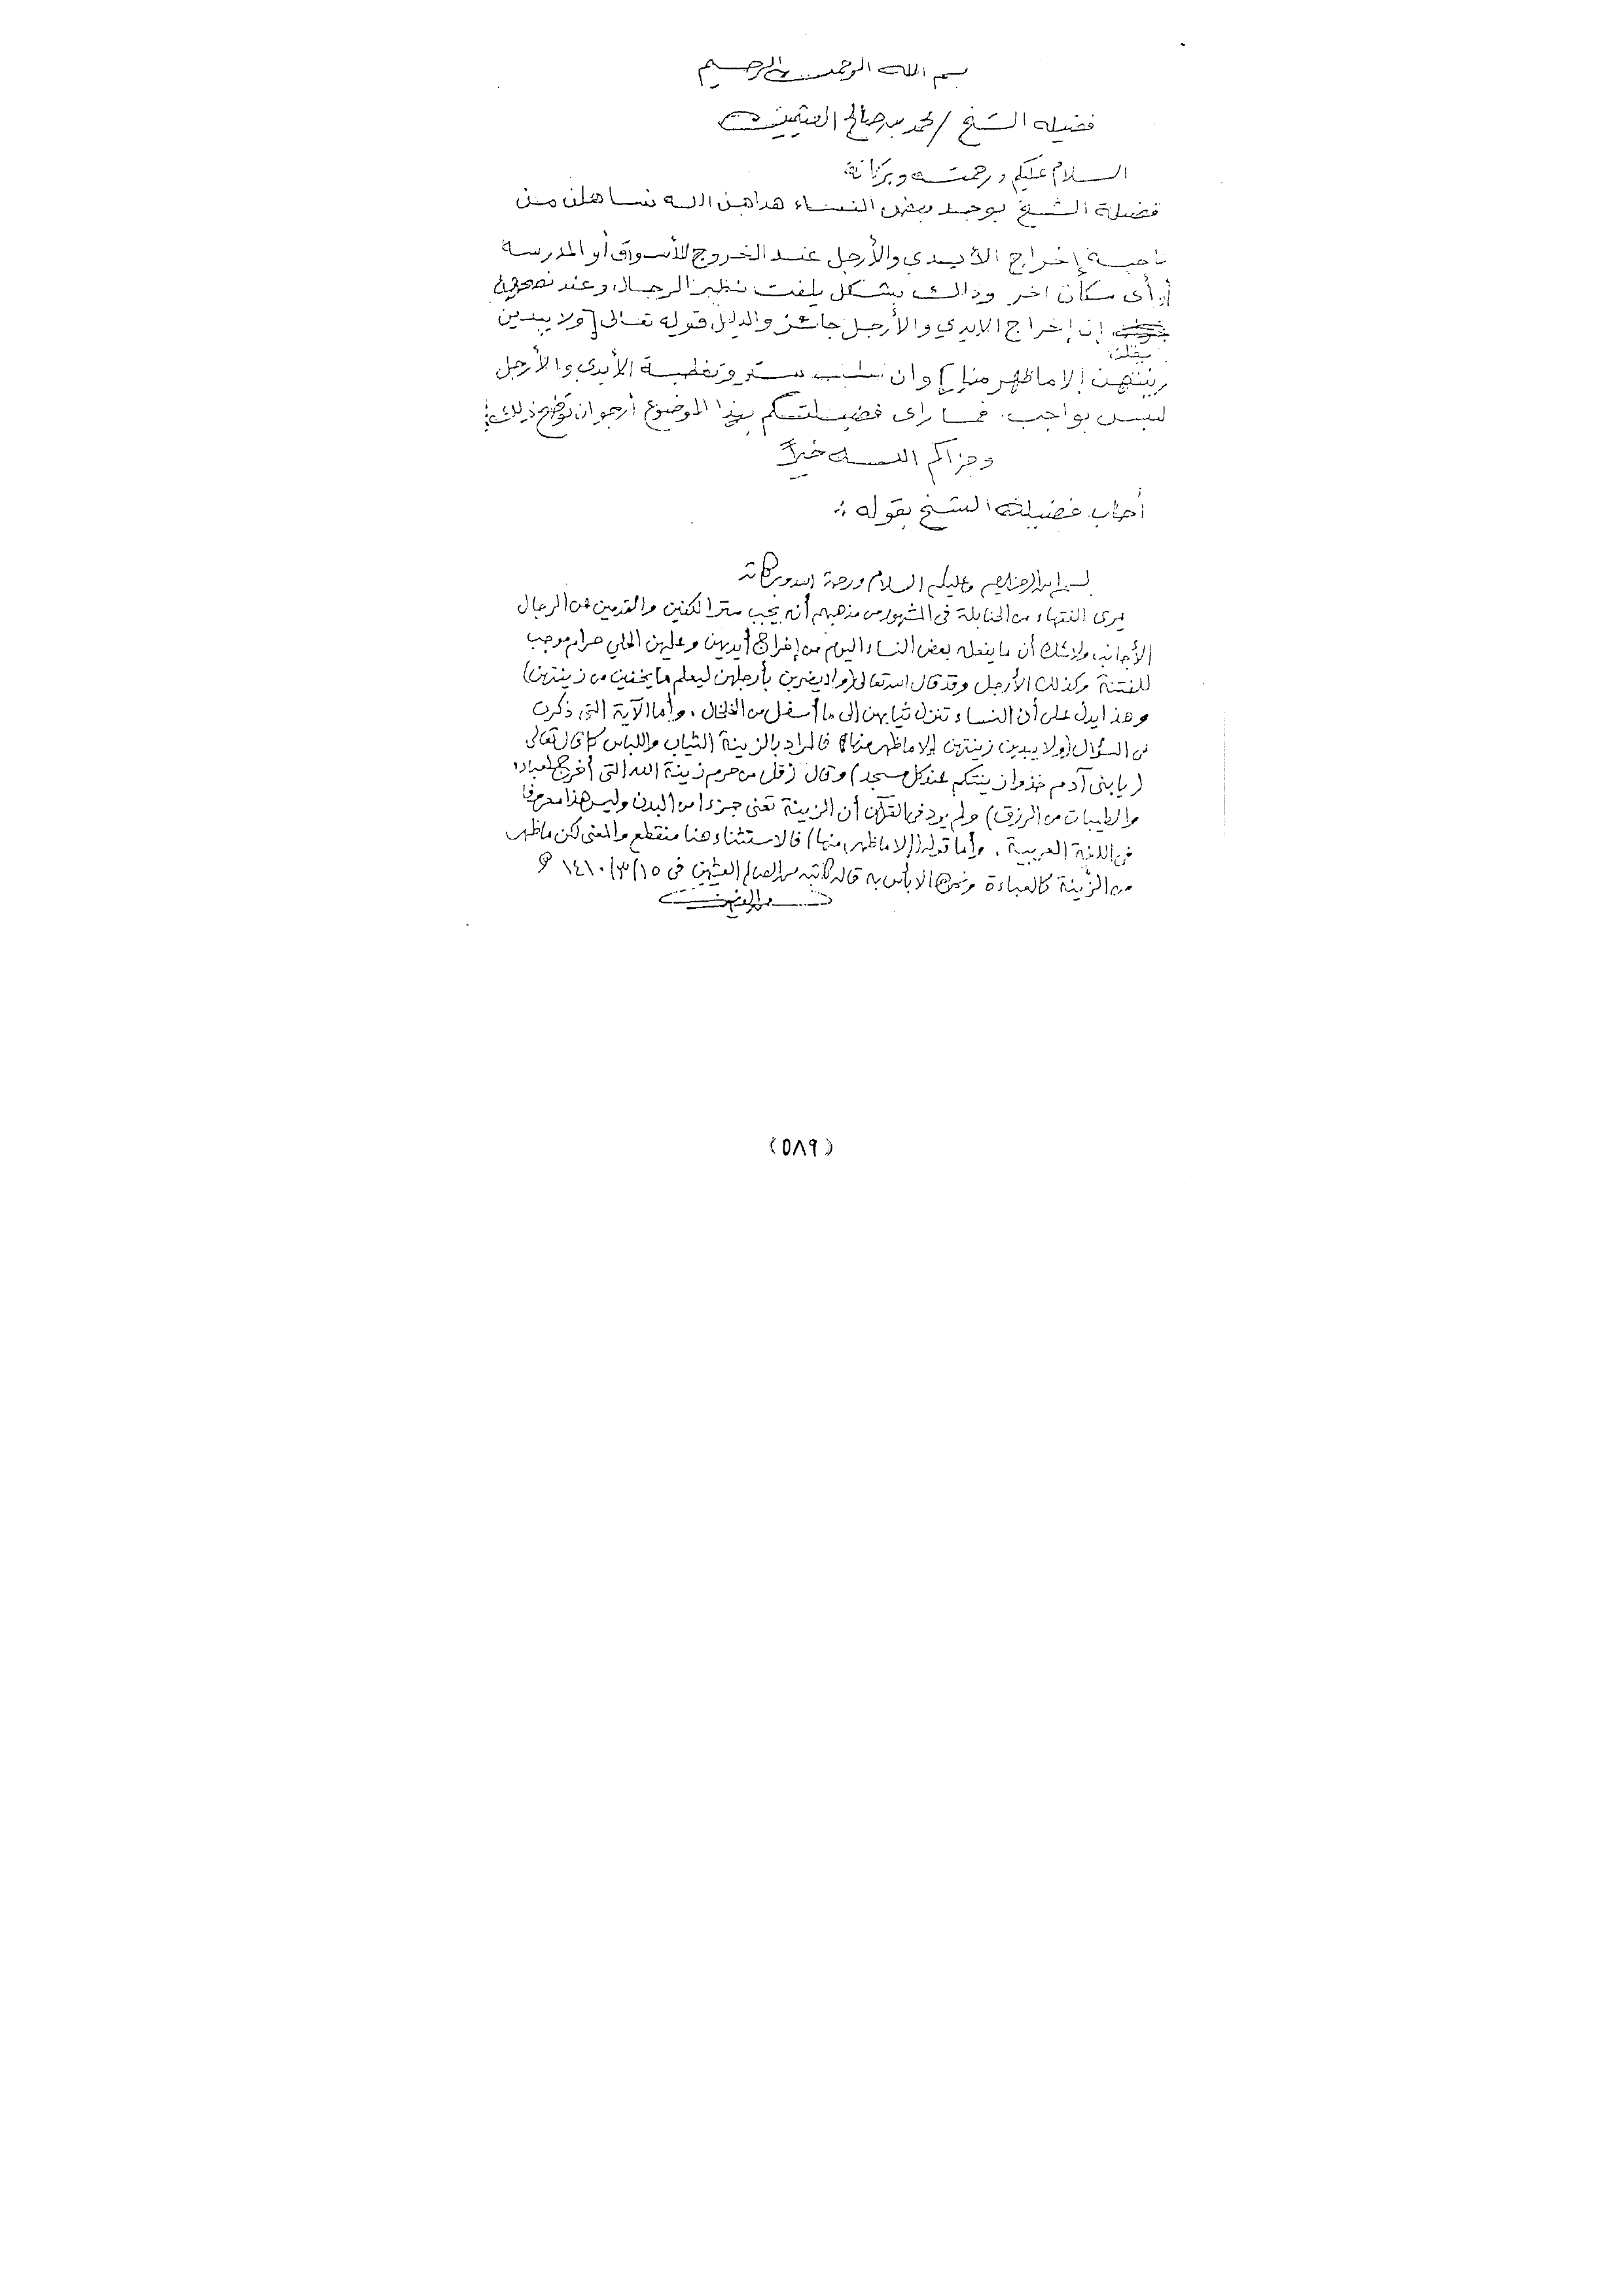 بسم الله الرحمن الرحيم
فضيله الشيخ / محمد بن صالح العثيمين
السلام عليكم ورحمته وبركاته
فضيلة الشيخ يوجد بعض النساء هداهن الله تساهلن من
ناحية إخراج الأيدي والأرجل عند الخروج للأسواق أو المدرسة
أو أي مكان اخر وذالك بشكل يلفت نظر الرجال وعند نصحهن
يقلن
إن إخراج الايدي والأرجل جائز والدليل قوله تعالى [ولا يبدين
زينتهن إلا ما ظهر منها] وان ستر وتغطية الأيدي والأرجل
ليس بواجب. فما راى فضيلتكم بهذا الموضوع أرجو ان توضح ذلك:
وجزاكم الله خيراً
أجاب فضيلة الشيخ بقوله :
بسم الله الرحمن الرحيم وعليكم السلام ورحمة الله وبركاته
يرى الفقهاء من الحنابلة في المشهور من مذهبهم أنه يجب ستر الكفين والقدمين عن الرجال
الأجانب ولا شك أن ما يفعله بعض النساء اليوم من إخراج أيديهن وعليهن الحلي حرام موجب
للفتنة وكذلك الأرجل وقد قال الله تعالى (ولا يضربن بأرجلهن ليعلم ما يخفين من زينتهن)
وهذا يدل على أن النساء تنزل ثيابهن إلى ما أسفل من الخلخال. وأما الآية التي ذكرت
في السؤال (ولا يبدين زينتهن إلا ما ظهر منها) فالمراد بالزينة الثياب واللباس كما قال تعالى
(يا بني آدم خذوا زينتكم عند كل مسجد) وقال (قل من حرم زينة الله التي أخرج لعباده
والطيبات من الرزق) ولم يرد في القرآن أن الزينة تعني جزءا من البدن وليس هذا معروفا
في اللغة العربية. وأما قوله (إلا ما ظهر منها) فالاستثناء هنا منقطع والمعنى لكن ما ظهر
من الزينة كالعباءة ونحوها لا بأس به قاله كاتبه محمد الصالح العثيمين في ١٥/٣/١٤١٠ هـ
(٥٨٩)